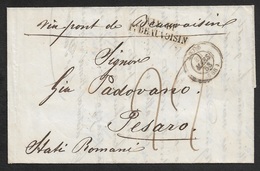 via pont de Beauvoisin
P. BEAUVOISIN
Signor
Gia Padovano.
Pesaro
Stati Romani